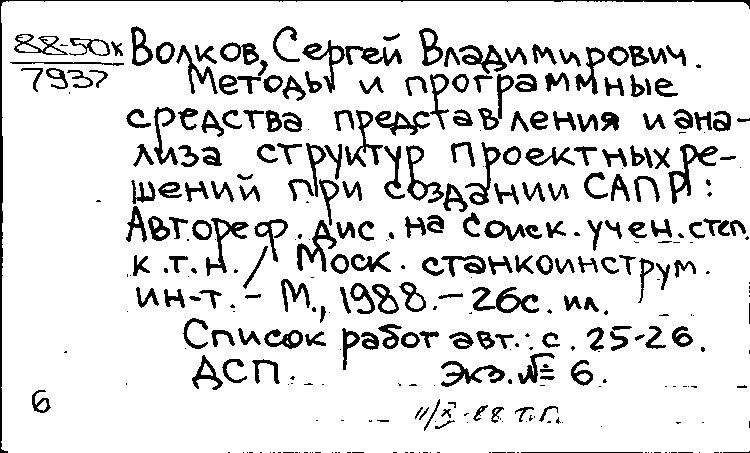 88-50к
7937
Волков, Сергей Владимирович.
Методы и программные
средства представления и ана-
лиза структур проектных ре-
шений при создании САПР:
Автореф. дис. на соиск. учен. степ.
к.т.н. / Моск. станкоинструм.
ин-т. – М., 1988. – 26с. ил.
Список работ авт.: с. 25-26.
ДСП. Экз. № 6.
6
11/X-88 т.г.